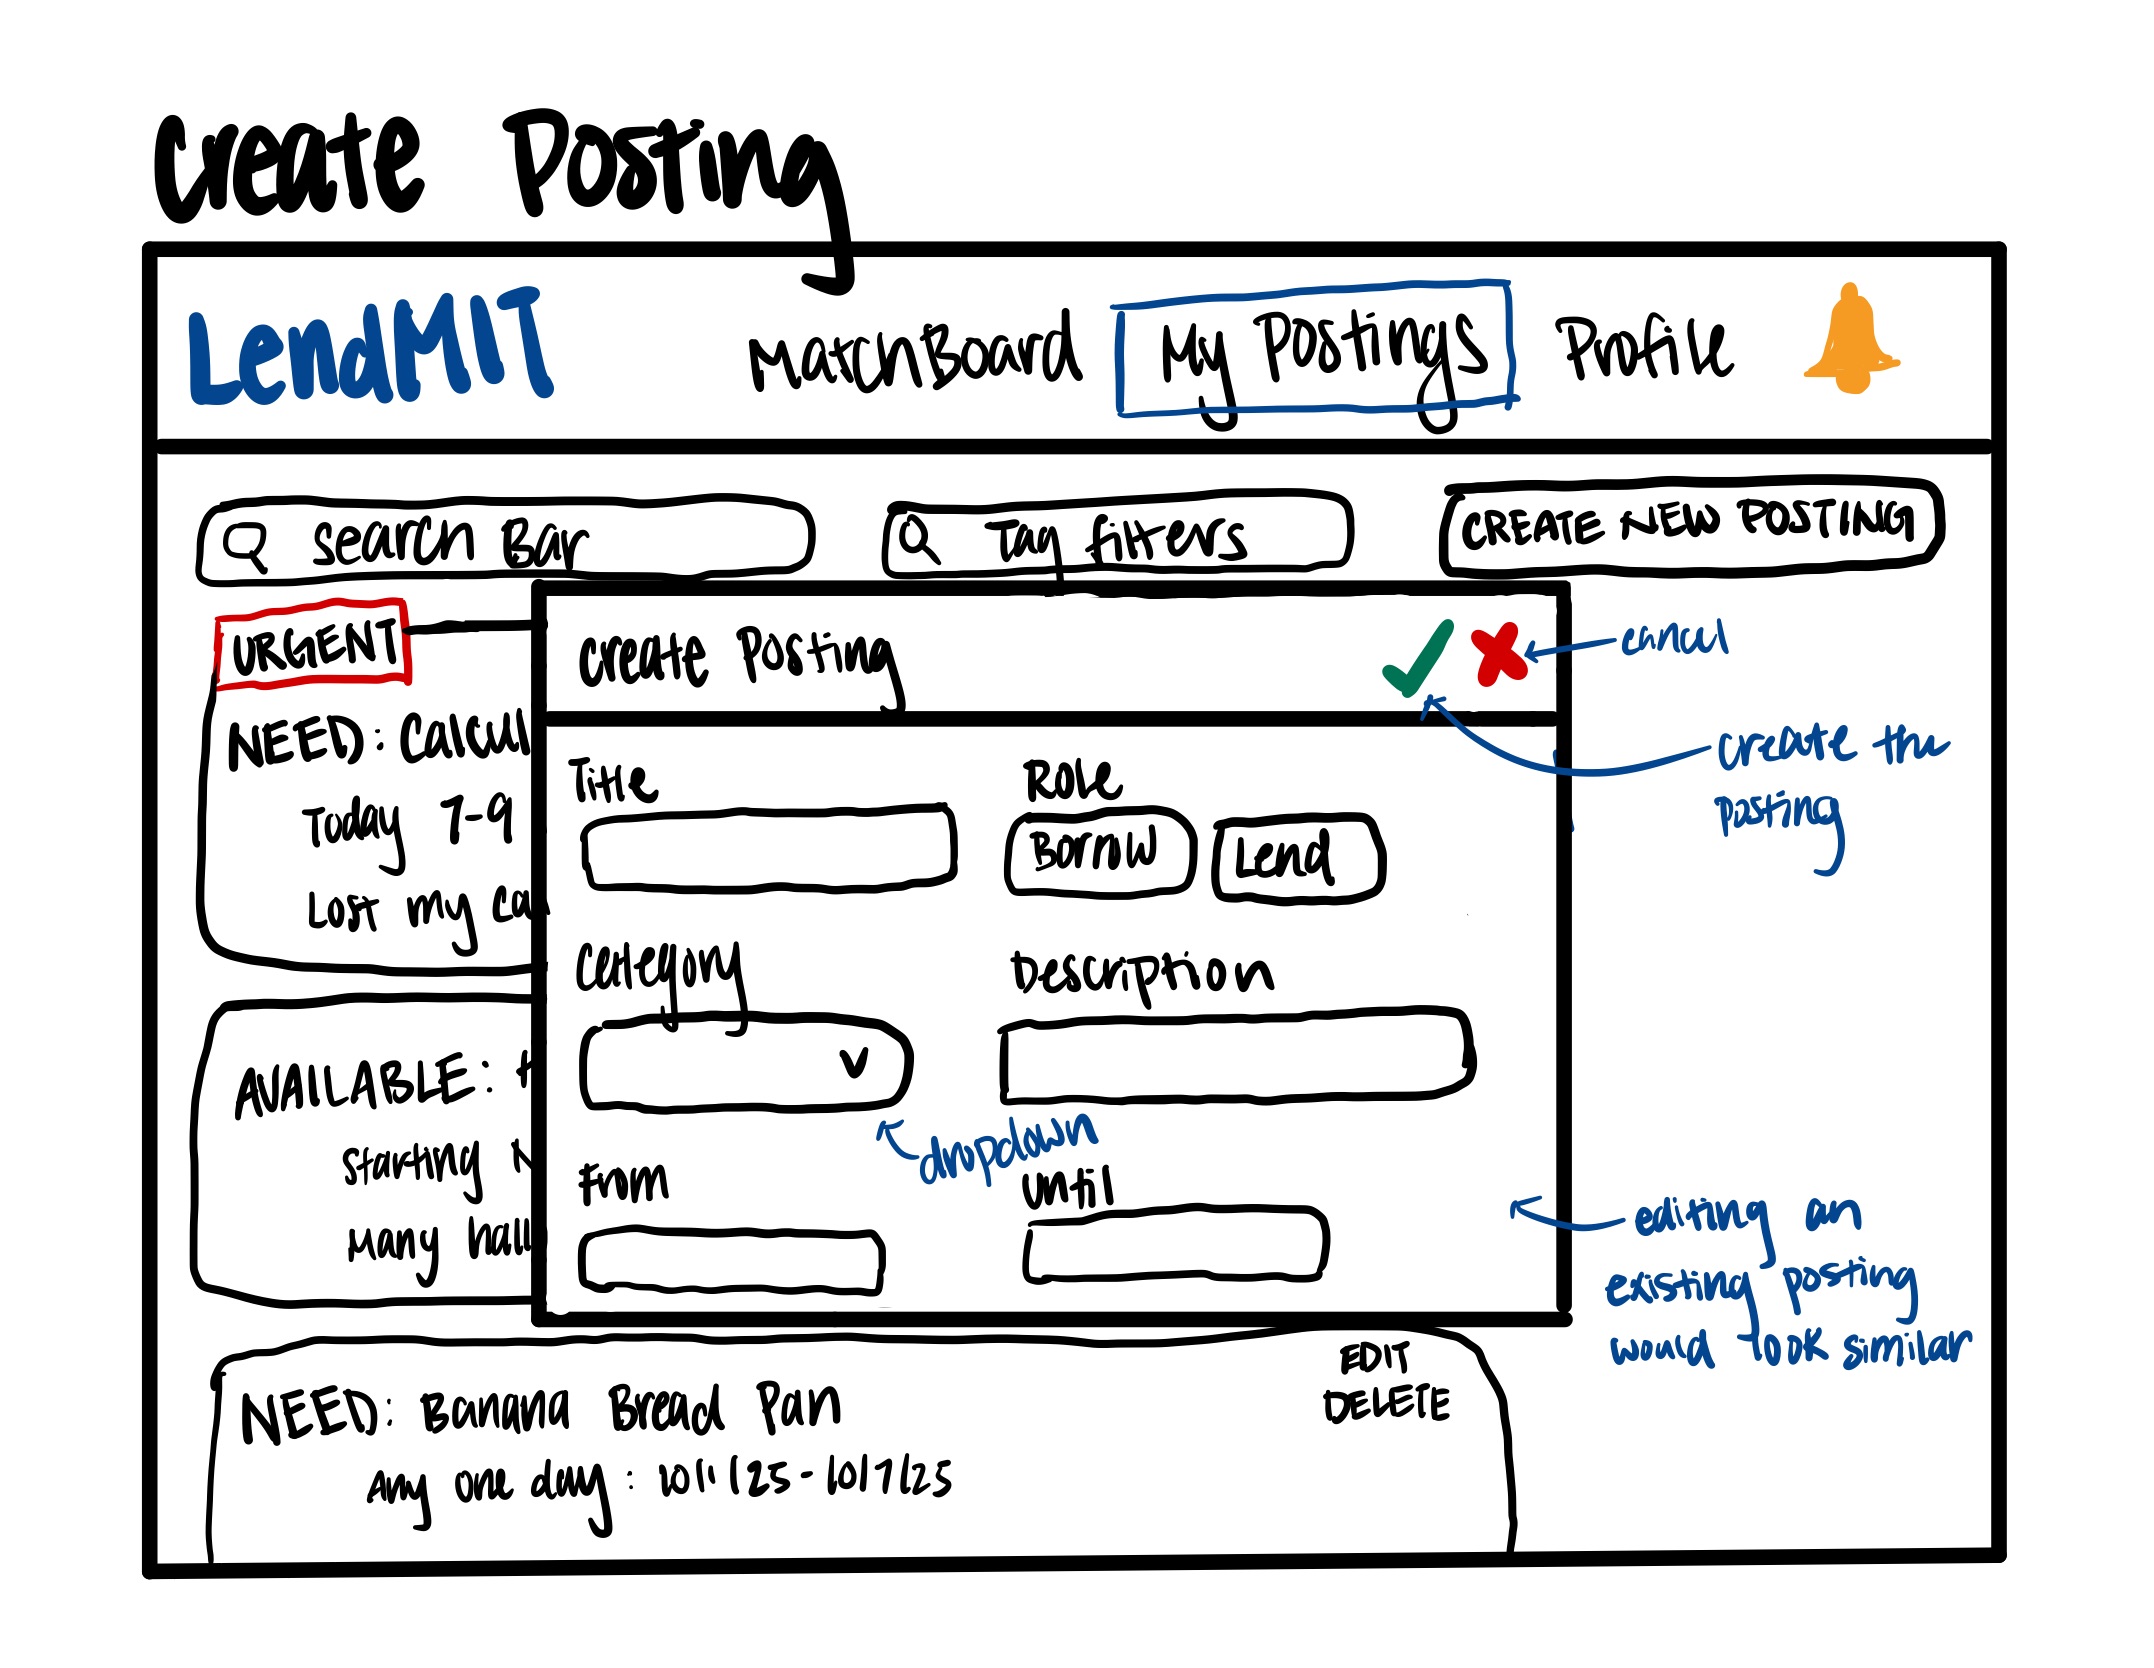 Create Posting
LendMIT MatchBoard My Postings Profile
Search Bar
Tag filters
CREATE NEW POSTING
URGENT
NEED: Calcul
Today 7-9
Lost my ca
AVAILABLE:
Starting
Many hall
Create Posting
cancel
create the
posting
Title
Role
Borrow
Lend
Category
Description
dropdown
From
Until
editing an
existing posting
would look similar
NEED: Banana Bread Pan
Any one day: 10/1/25-10/7/25
EDIT
DELETE